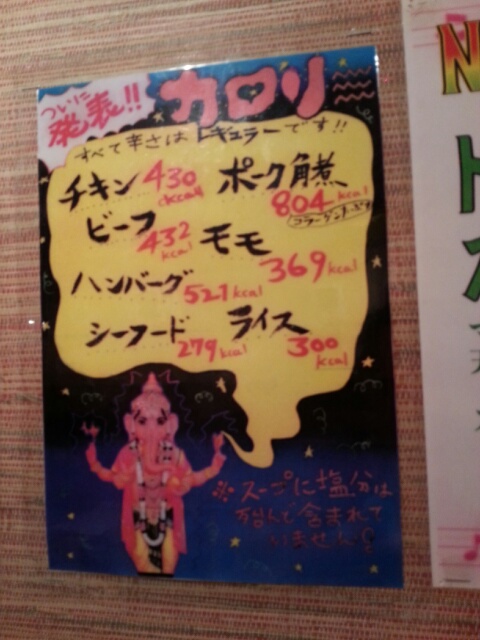 ついに
発表!!
カロリー
すべて辛さはレギュラーです!!
チキン 430 kcal
ポーク角煮 804 kcal
ビーフ 432 kcal
モモ 369 kcal
ハンバーグ 521 kcal
シーフード 279 kcal
ライス 300 kcal
※スープに塩分は
ほとんど含まれて
いません
N
ト